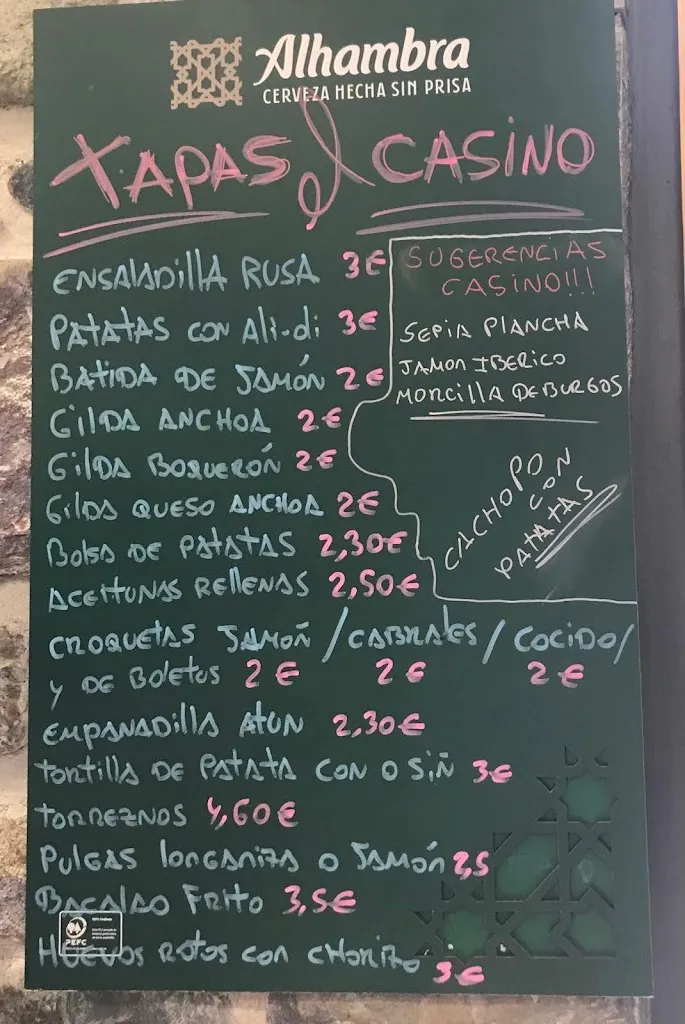 Alhambra
CERVEZA HECHA SIN PRISA
TAPAS el CASINO
ENSALADILLA RUSA 3€
PATATAS CON Ali-di 3€
BATIDA DE JAMÓN 2€
GILDA ANCHOA 2€
GILDA BOQUERÓN 2€
GILDA QUESO ANCHOA 2€
BOLSA DE PATATAS 2,30€
ACEITUNAS RELLENAS 2,50€
SUGERENCIAS
CASINO!!!
SEPIA PLANCHA
JAMON IBERICO
MORCILLA DE BURGOS
CACHOPO
CON
PATATAS
CROQUETAS JAMOÑ / CABRALES / COCIDO /
Y DE BOLETUS 2€ 2€ 2€
EMPANADILLA ATUN 2,30€
TORTILLA DE PATATA CON O SIÑ 3€
TORREZNOS 4,60€
PULGAS LONGANIZA O JAMÓN 2,5
BACALAO FRITO 3,5€
HUEVOS ROTOS CON CHORIZO 3€
PEFC